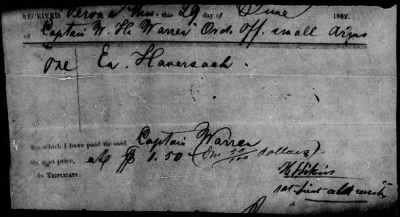 RECEIVED Verona Miss this 29 day of June 1862.
of Captain W. H. Warren Ord. Off. small arms
one En. Haversack.
for which I have paid the said Captain Warren
the cost price, at $ 1.50 (One 50/100 dollars).
IN TRIPLICATE.